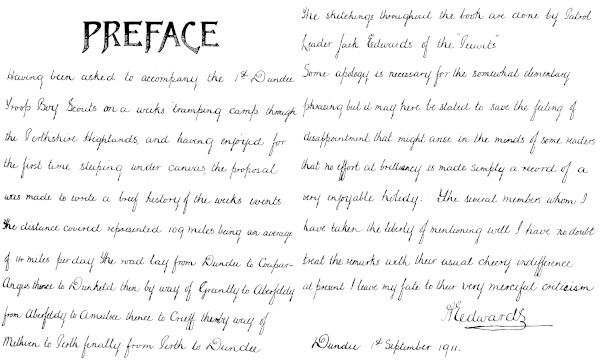 PREFACE
Having been asked to accompany the 1st Dundee
Troop Boy Scouts on a weeks tramping camp through
the Perthshire Highlands, and having enjoyed for
the first time sleeping under canvas, the proposal
was made to write a brief history of the weeks events.
The distance covered represented 109 miles being an average
of 14 miles per day The road lay from Dundee to Coupar-
Angus thence to Dunkeld then by way of Grantly to Aberfeldy
from Aberfeldy to Amulree thence to Crieff thenby way of
Methven to Perth finally from Perth to Dundee
The sketchings throughout the book are done by Patrol
Leader Jack Edwards of the "Peewits"
Some apology is necessary for the somewhat elementary
phrasing but it may here be stated to save the feeling of
disappointment that might arise in the minds of some readers
that no effort at brilliancy is made simply a record of a
very enjoyable holiday. The several members whom I
have taken the liberty of mentioning will I have no doubt
treat the remarks with their usual cheery indifference
at present I leave my fate to their very merciful criticism
Edwards
Dundee 1st September 1911.